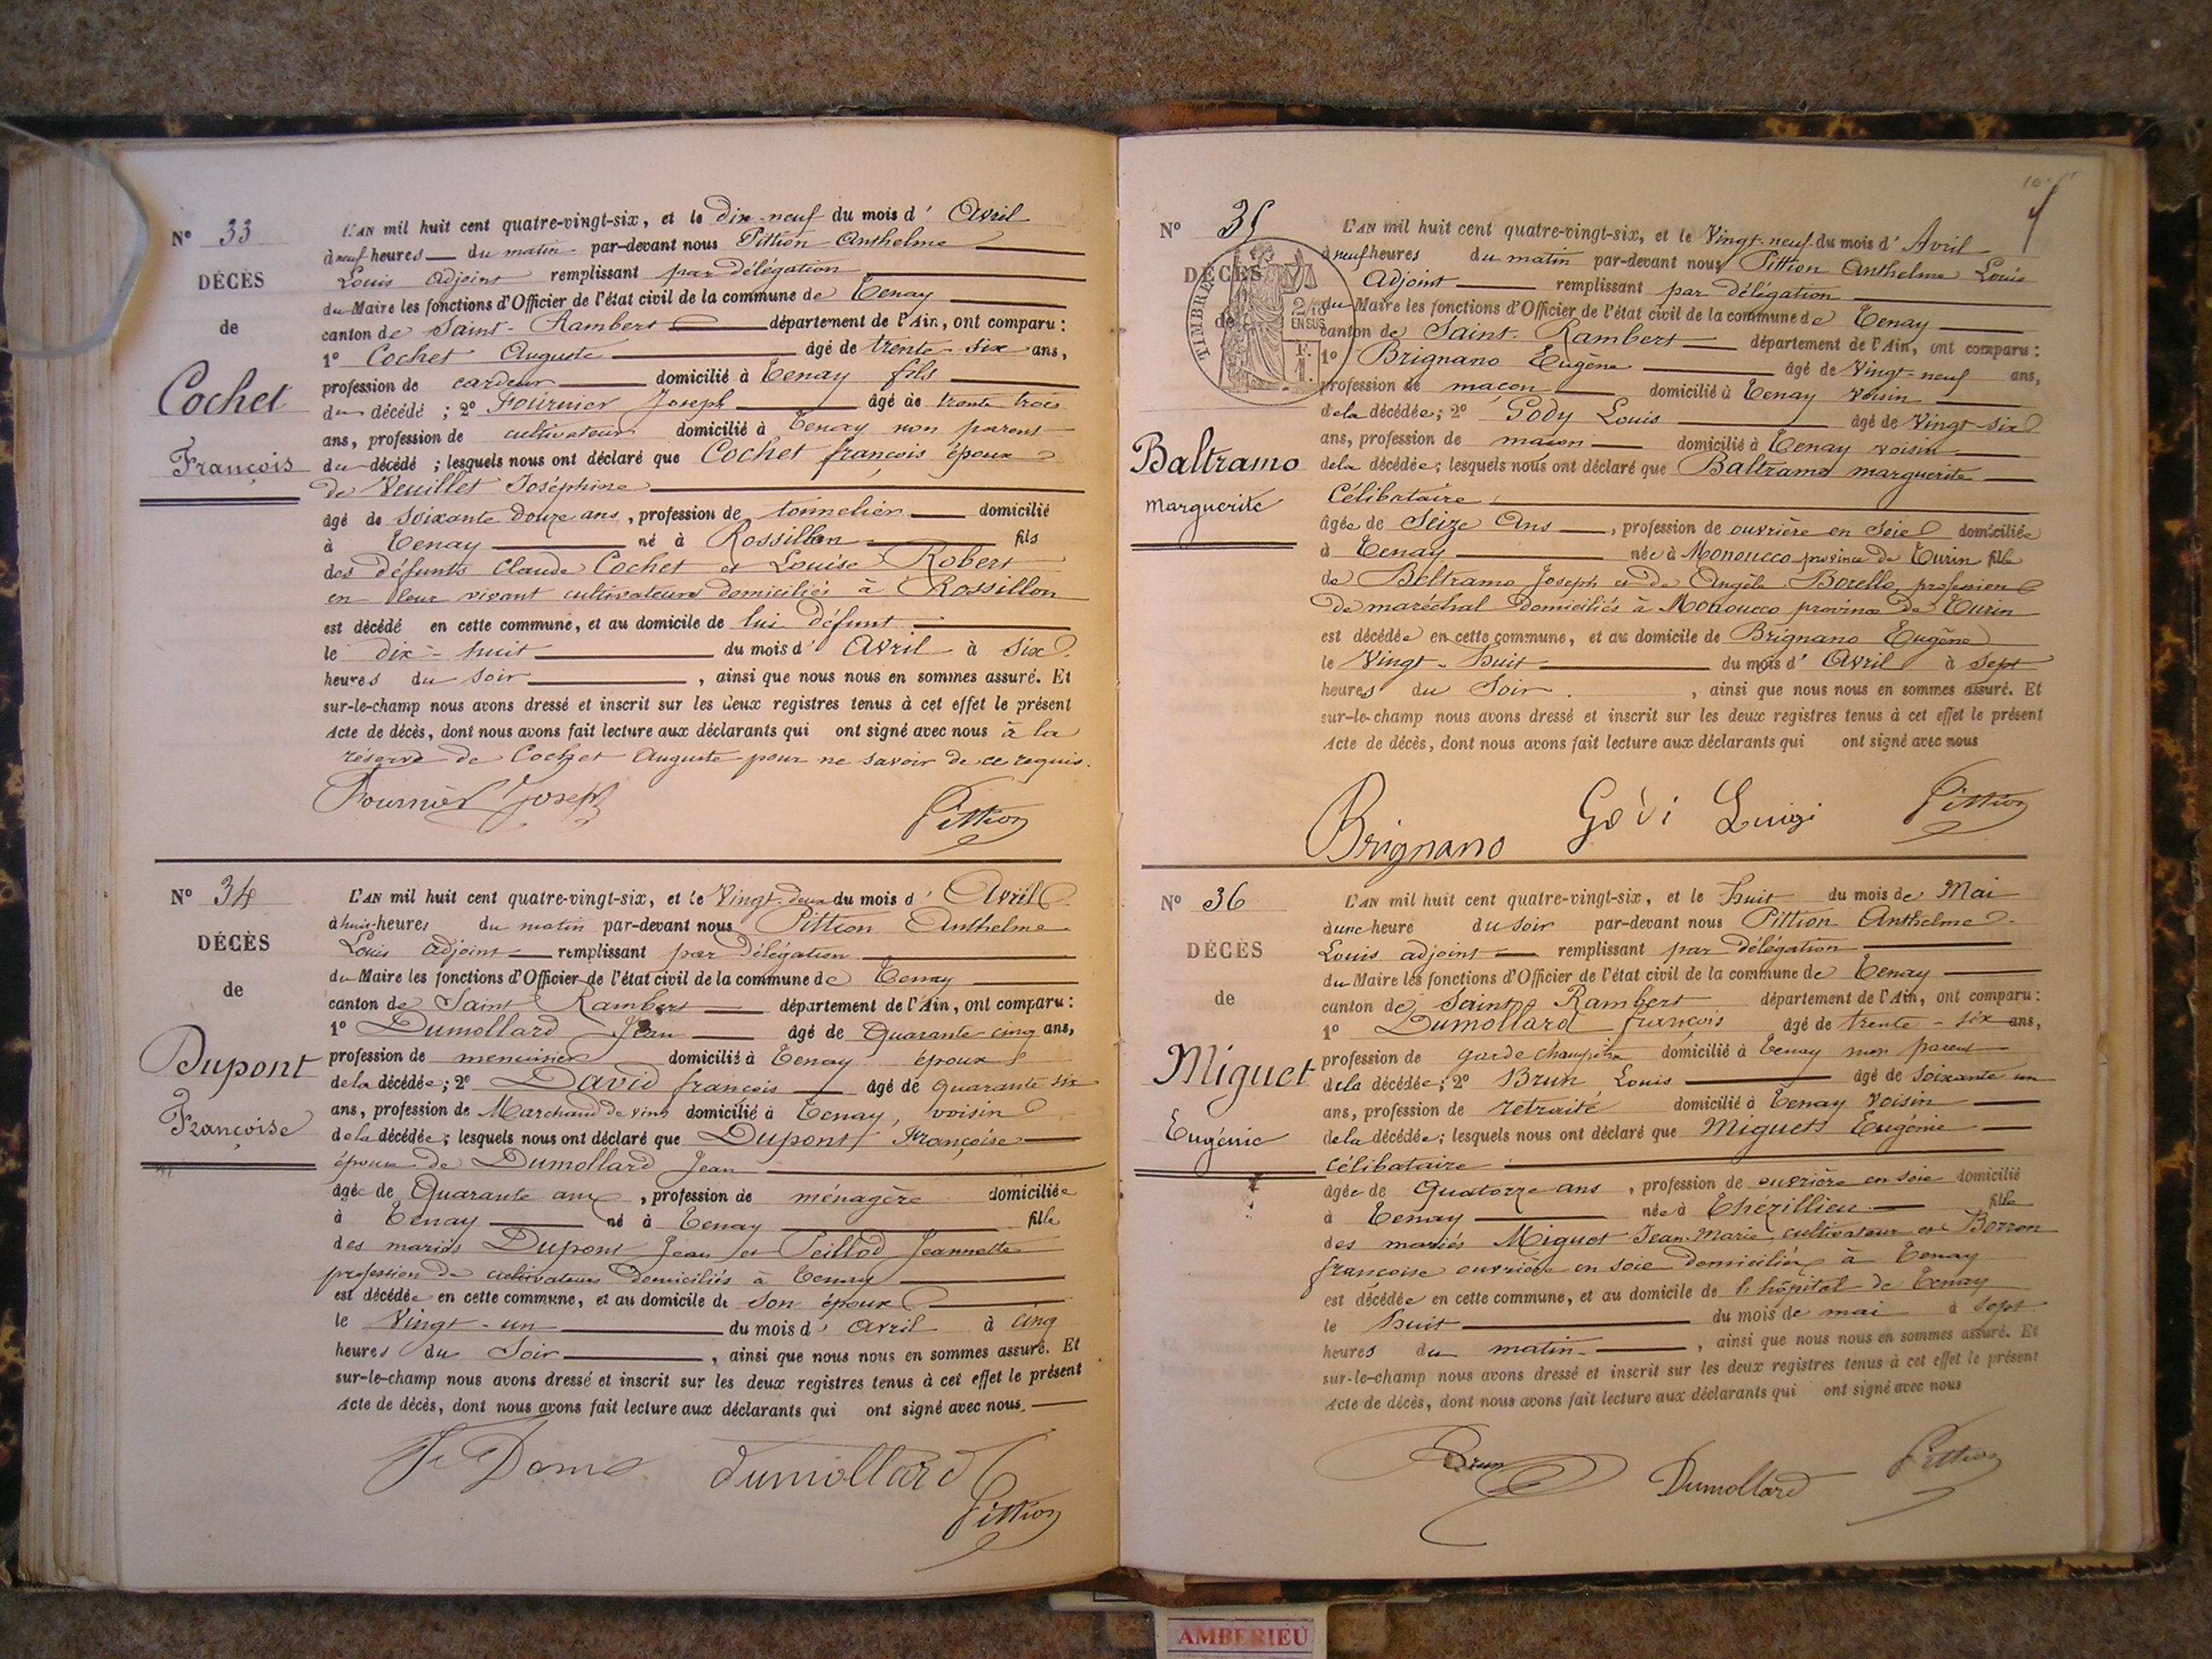 N° 33
DÉCÈS
de
Cochet
François
L'AN mil huit cent quatre-vingt-six, et le dix-neuf du mois d' Avril
à neuf heures du matin par-devant nous Pittion Anthelme
Louis adjoint remplissant par délégation
du Maire les fonctions d'Officier de l'état civil de la commune de Tenay
canton de Saint-Rambert département de l'Ain, ont comparu :
1° Cochet Auguste âgé de trente-six ans,
profession de cardeur domicilié à Tenay fils
du décédé ; 2° Fournier Joseph âgé de trente trois
ans, profession de cultivateur domicilié à Tenay non parent
du décédé ; lesquels nous ont déclaré que Cochet françois époux
de Veuillet Joséphine
âgé de soixante douze ans, profession de tonnelier domicilié
à Tenay né à Rossillon fils
des défunts Claude Cochet et Louise Robert
en leur vivant cultivateurs domiciliés à Rossillon
est décédé en cette commune, et au domicile de lui défunt
le dix-huit du mois d' Avril à six
heures du soir, ainsi que nous nous en sommes assuré. Et
sur-le-champ nous avons dressé et inscrit sur les deux registres tenus à cet effet le présent
Acte de décès, dont nous avons fait lecture aux déclarants qui ont signé avec nous à la
réserve de Cochet Auguste pour ne savoir de ce requis.
Fournier Joseph
Pittion
N° 34
DÉCÈS
de
Dupont
Françoise
L'AN mil huit cent quatre-vingt-six, et le Vingt-deux du mois d' Avril
à huit heures du matin par-devant nous Pittion Anthelme
Louis adjoint remplissant par délégation
du Maire les fonctions d'Officier de l'état civil de la commune de Tenay
canton de Saint Rambert département de l'Ain, ont comparu :
1° Dumollard Jean âgé de Quarante cinq ans,
profession de menuisier domicilié à Tenay époux
de la décédée ; 2° David françois âgé de quarante six
ans, profession de Marchand de vins domicilié à Tenay, voisin
de la décédée ; lesquels nous ont déclaré que Dupont Françoise
épouse de Dumollard Jean
âgée de Quarante ans, profession de ménagère domiciliée
à Tenay né à Tenay fille
des mariés Dupont Jean et Peillod Jeannette
profession de cultivateurs domiciliés à Tenay
est décédée en cette commune, et au domicile de son époux
le Vingt-un du mois d' avril à cinq
heures du Soir, ainsi que nous nous en sommes assuré. Et
sur-le-champ nous avons dressé et inscrit sur les deux registres tenus à cet effet le présent
Acte de décès, dont nous avons fait lecture aux déclarants qui ont signé avec nous.
dumollard
Pittion
N° 35
DÉCÈS
de
TIMBRE
2/10
EN SUS
Baltramo
Marguerite
L'AN mil huit cent quatre-vingt-six, et le Vingt-neuf du mois d' Avril
à neuf heures du matin par-devant nous Pittion Anthelme Louis
Adjoint remplissant par délégation
du Maire les fonctions d'Officier de l'état civil de la commune de Tenay
canton de Saint-Rambert département de l'Ain, ont comparu :
1° Brignano Eugène âgé de Vingt-neuf ans,
profession de maçon domicilié à Tenay voisin
de la décédée ; 2° Gody Louis âgé de Vingt-six
ans, profession de maçon domicilié à Tenay voisin
de la décédée ; lesquels nous ont déclaré que Baltramo marguerite
Célibataire
âgée de Seize Ans, profession de ouvrière en soie domiciliée
à Tenay née à Monoucco province de Turin fille
de Beltramo Joseph et de Angèle Borello, profession
de maréchal domiciliés à Monoucco province de Turin
est décédée en cette commune, et au domicile de Brignano Eugène
le Vingt-huit du mois d' Avril à sept
heures du Soir, ainsi que nous nous en sommes assuré. Et
sur-le-champ nous avons dressé et inscrit sur les deux registres tenus à cet effet le présent
Acte de décès, dont nous avons fait lecture aux déclarants qui ont signé avec nous
Brignano Gòvi Luigi Pittion
N° 36
DÉCÈS
de
Miguet
Eugénie
L'AN mil huit cent quatre-vingt-six, et le huit du mois de Mai
à une heure du soir par-devant nous Pittion Anthelme
Louis adjoint remplissant par délégation
du Maire les fonctions d'Officier de l'état civil de la commune de Tenay
canton de Saint Rambert département de l'Ain, ont comparu :
1° Dumollard françois âgé de trente-six ans,
profession de garde champêtre domicilié à Tenay non parent
de la décédée ; 2° Brun Louis âgé de soixante un
ans, profession de retraité domicilié à Tenay voisin
de la décédée ; lesquels nous ont déclaré que Miguet Eugénie
célibataire
âgée de Quatorze ans, profession de ouvrière en soie domicilié
à Tenay née à Thézillieu fille
des mariés Miguet Jean-Marie, cultivateur et Borron
françoise ouvrière en soie domiciliés à Tenay
est décédée en cette commune, et au domicile de l'hôpital de Tenay
le huit du mois de mai à sept
heures du matin, ainsi que nous nous en sommes assuré. Et
sur-le-champ nous avons dressé et inscrit sur les deux registres tenus à cet effet le présent
Acte de décès, dont nous avons fait lecture aux déclarants qui ont signé avec nous
Brun Dumollard Pittion
AMBERIEU